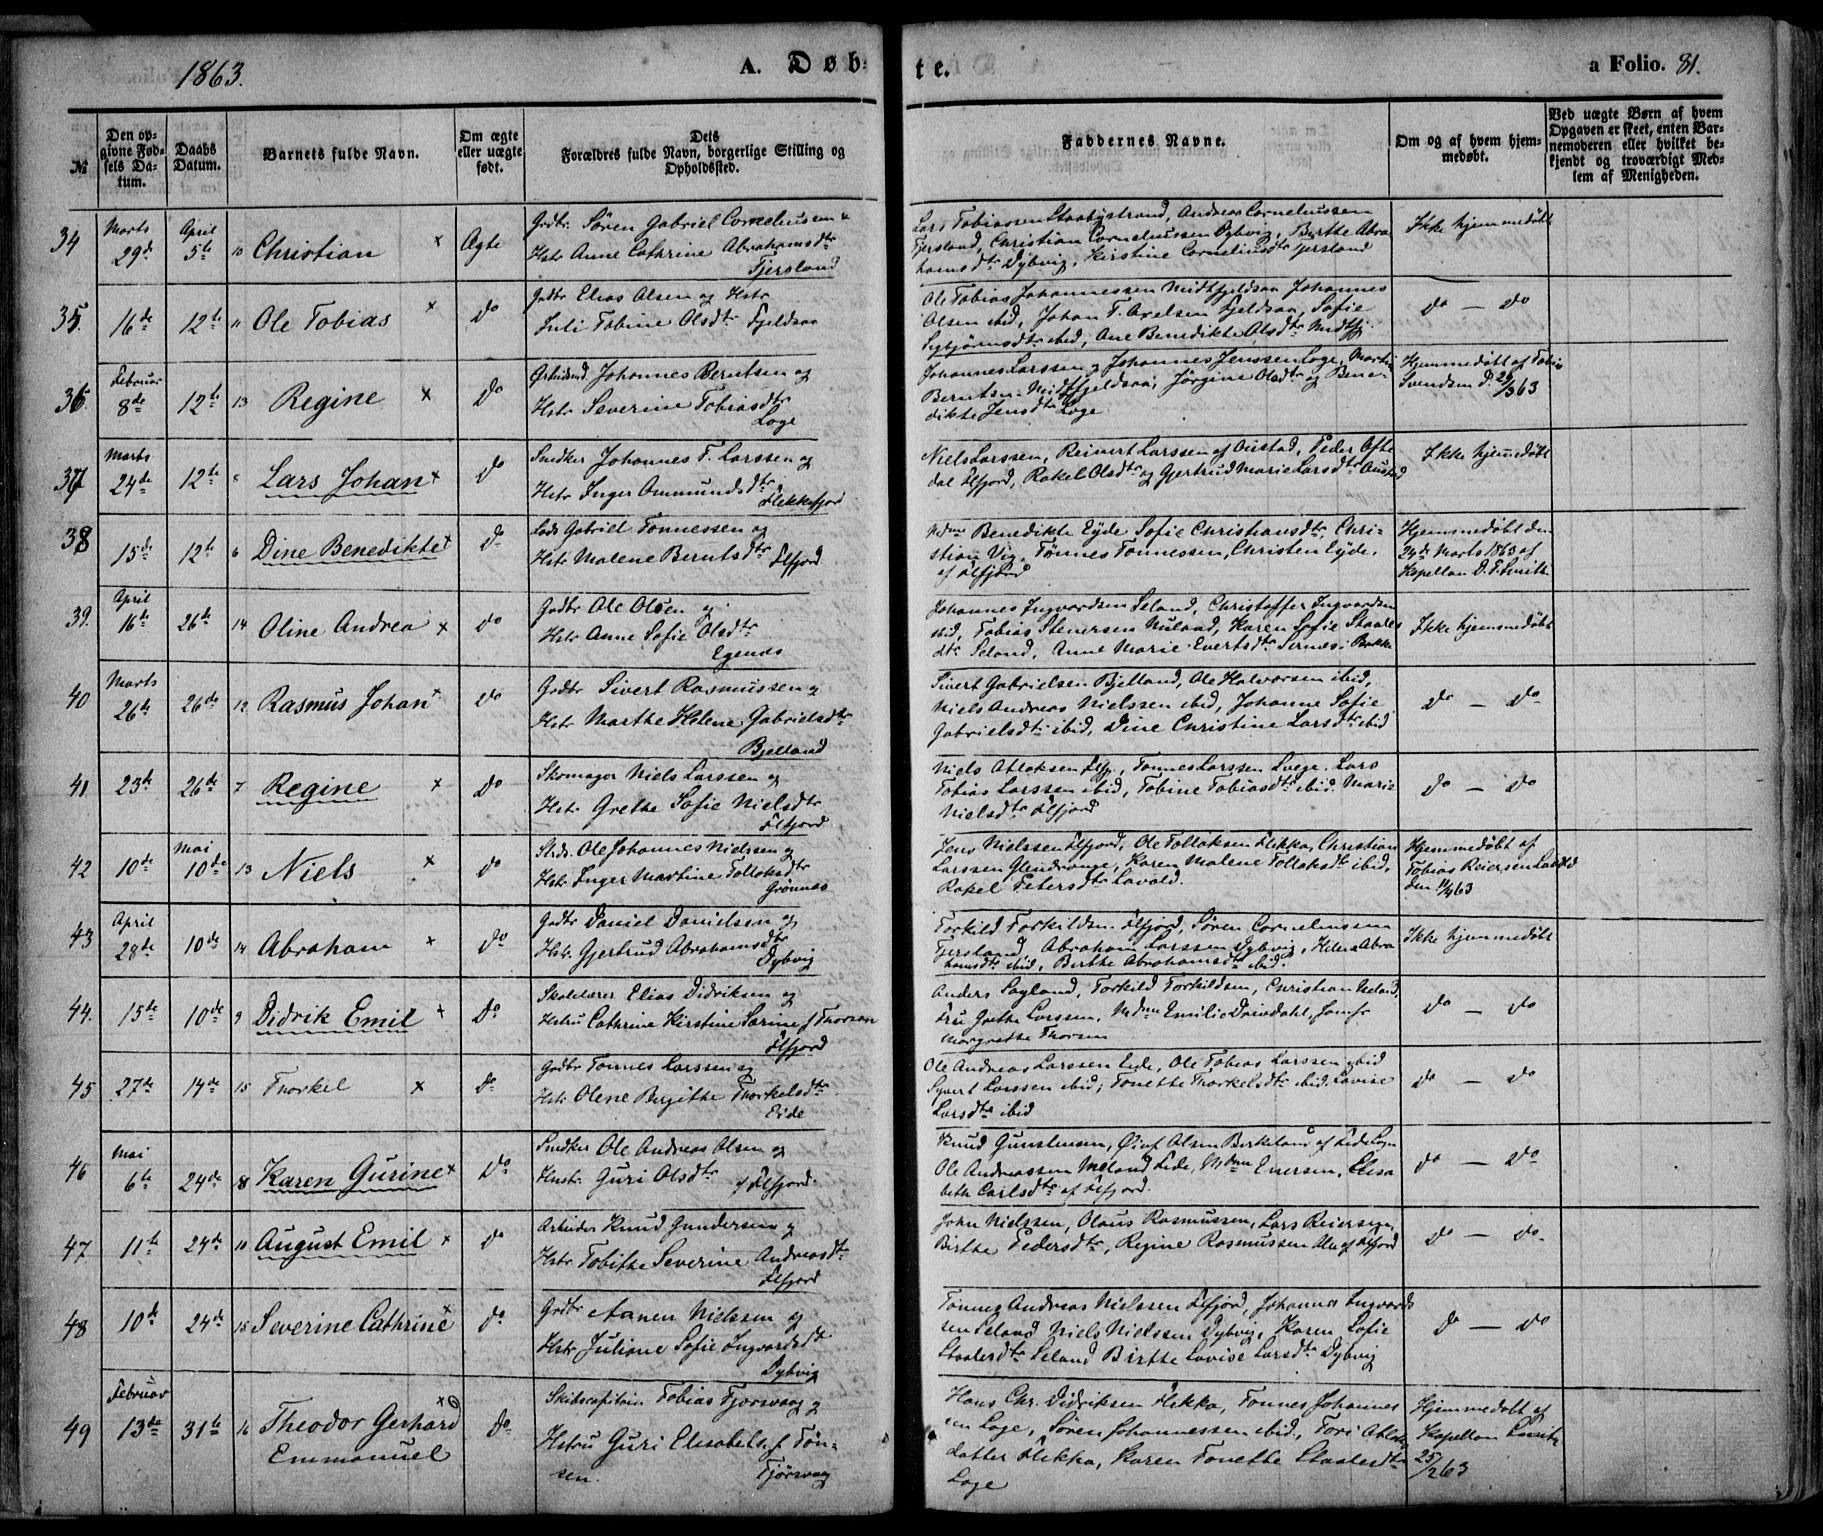 1863.
A. Døb-
te.
a Folio. 81.
№
Den op-
givne Fød-
sels Da-
tum.
Daabs
Datum.
Barnets fulde Navn.
Om ægte
eller uægte
født.
Dets
Forældres fulde Navn, borgerlige Stilling og
Opholdssted.
Faddernes Navne.
Om og af hvem hjem-
medøbt.
Ved uægte Børn af hvem
Opgaven er skeet, enten Bar-
nemoderen eller hvilket be-
kjendt og troværdigt Med-
lem af Menigheden.
34 Marts 29de April 5te 10 Christian × Ægte
Grdbr. Søren Gabriel Corneliussen &
Hstr Anne Cathrine Abrahamsdtr
Fjersland
Lars Tobiassen Andreas Corneliussen
Fjersland, Christian Corneliussen Dybvig, Birthe Abra
hamsdtr Dybvig, Kirstine Corneliusdtr Fjersland
Ikke hjemmedøbt
35 16de 12te 11 Ole Tobias × do
Grdbr Elias Olsen og Hstr
Juli Tobine Olsdtr Fjeldsaa
Ole Tobias Johannessen Midtfjeldsaa Johannes
Olsen ibid, Johan T. Axelsen Fjeldsaa, Sofie
Sybjørnsdtr ibid, Ane Benedikte Olsdtr Midtfj.
do — do
36 Februar 8de 12te 13 Regine × do
Arbeidsmd. Johannes Berntsen og
Hstr Severine Tobiasdtr
Loge
Johannes Larssen & Johannes Jenssen Loge, Martin
Berntsen Midtfjeldsaa, Jørgine Olsdtr og Bene
dikte Jensdtr Loge
Hjemmedøbt af Tobias
Svendsen d. 29/363
37 Marts 24de 12te 5 Lars Johan × do
Snedker Johannes T. Larssen og
Hstr Inger Ommundsdtr
Flekkefjord
Niels Larssen, Reinert Larssen af Austad, Peder Ofte
dal Flfjord, Rakel Olsdtr og Gjertrud Marie Larsdtr Austad
Ikke hjemmedøbt
38 15de 12te 6 Dine Benedikte × do
Lods Gabriel Tønnessen og
Hstr Malene Berntsdtr Flfjord
Mdme Benedikte Eyde Sofie Christiansdtr, Chri-
stian Vig, Tønnes Tønnessen, Christen Eyde,
af Flfjord
Hjemmedøbt den
24de Marts 1863 af
Kapellan D. F. Smith
39. April 16de 26de 14 Oline Andrea × do
Grdbr Ole Olsen og
Hstr Anne Sofie Olsdtr
Egenes
Johannes Ingvardsen Seland, Christoffer Ingvardsen
ibid, Tobias Stenersen Nuland, Karen Sofie Staales
dtr Seland, Anne Marie Evertsdtr Sirnes i Bakke
Ikke hjemmedøbt
40 Marts 26de 26de 12 Rasmus Johan × do
Grdbr Sivert Rasmussen &
Hstr Marthe Helene Gabrielsdtr
Bjelland
Sivert Gabrielsen Bjelland, Ole Halvorsen ibid,
Niels Andreas Nielssen ibid, Johanne Sofie
Gabrielsdtr ibid, Dine Christine Larsdtr ibid
do — do
41 23de 26de 7 Regine × do
Skomager Niels Larssen og
Hstr Grethe Sofie Nielsdtr
Flfjord
Niels Atlaksen Flfj., Tønnes Larssen Loge, Lars
Tobias Larssen ibid, Tobine Tobiasdtr ibid. Marie
Nielsdtr Flfjord
do — do
42 10de Mai 10de 13 Niels × do
Strds. Ole Johannes Nielssen og
Hstr Inger Martine Tollaksdtr
Grønnes
Jens Nielssen Flfjord, Ole Tollaksen Flikka, Christian
Larssen Glendrange, Karen Malene Tollaksdtr ibid,
Rakel Petersdtr Lavold.
Hjemmedøbt af
Tobias Reiersen Lavold
den 11/463
43 April 28de 10de 14 Abraham × do
Grdbr Daniel Danielsen og
Hstr. Gjertrud Abrahamsdtr
Dybvig
Torkild Torkildsen Flfjord, Søren Corneliussen
Fjersland, Abraham Larssen Dybvig, Helene Abra
hamsdtr ibid, Birthe Abrahamsdtr ibid.
Ikke hjemmedøbt
44. 15de 10de 9 Didrik Emil × do
Skolelærer Elias Didriksen og
Hstru Cathrine Kirstine Sarine f. Thorsen
Flfjord
Anders Sagland, Torkild Torkildsen, Christian Nuland,
Fru Grethe Larssen, Mdme Emilie Drivdahl, Jomfr
Margrethe Thorsen
do — do
45 27de 14de 15 Thorkel × do
Grdbr Tønnes Larssen og
Hstr Olene Birgithe Thorkelsdtr
Eide
Ole Andreas Larssen Eide, Ole Tobias Larssen ibid
Syvert Larssen ibid, Tonette Thorkelsdtr ibid, Lovise
Larsdtr ibid
do — do
46 Mai 6te 24de 8 Karen Gurine × do
Snedker Ole Andreas Olsen og
Hustr. Guri Olsdtr af Flfjord.
Knud Gunstensen, Olsen Birkeland af Fede Sogn
Ole Andreassen Meland Fede, Mdme Enersen, Elisa
beth Carlsdtr af Flfjord.
do — do
47 11te 24de 10 August Emil × do
Arbeider Knud Gundersen &
Hstr Tobithe Severine Andreasdtr
Flfjord
John Nielssen, Olaus Rasmussen, Lars Reiersen,
Birthe Pedersdtr, Regine Rasmussen Alle af Flfjord
do — do.
48 10de 24de 18 Severine Cathrine × do
Grdbr Aanen Nielssen og
Hstr Juliane Sofie Ingvardsdtr
Dybvig
Tønnes Andreas Nielssen Flfjord, Johannes Ingvards
sen Seland, Niels Nielssen Dybvig, Karen Sofie
Staalesdtr Seland Birthe Lovise Larsdtr Dybvig
do — do
49 Februar 13de 31te 16 Theodor Gerhard × do
Emmanuel
Skibscapitain Tobias Fjørsvaag &
Hstru Guri Elisabeth f. Tøn-
sen. Fjørsvaag
Hans Chr. Didriksen Flikka, Tønnes Johannes
sen Loge, Søren Johannessen ibid, Tori Atlaks
datter Flikka, Karen Tonette Staalesdtr
Loge
Hjemmedøbt af
Kapellan Smith
25/263